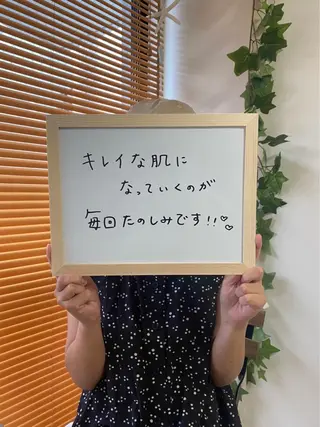 キレイな肌に
なっていくのが
毎回たのしみです!!♡♡